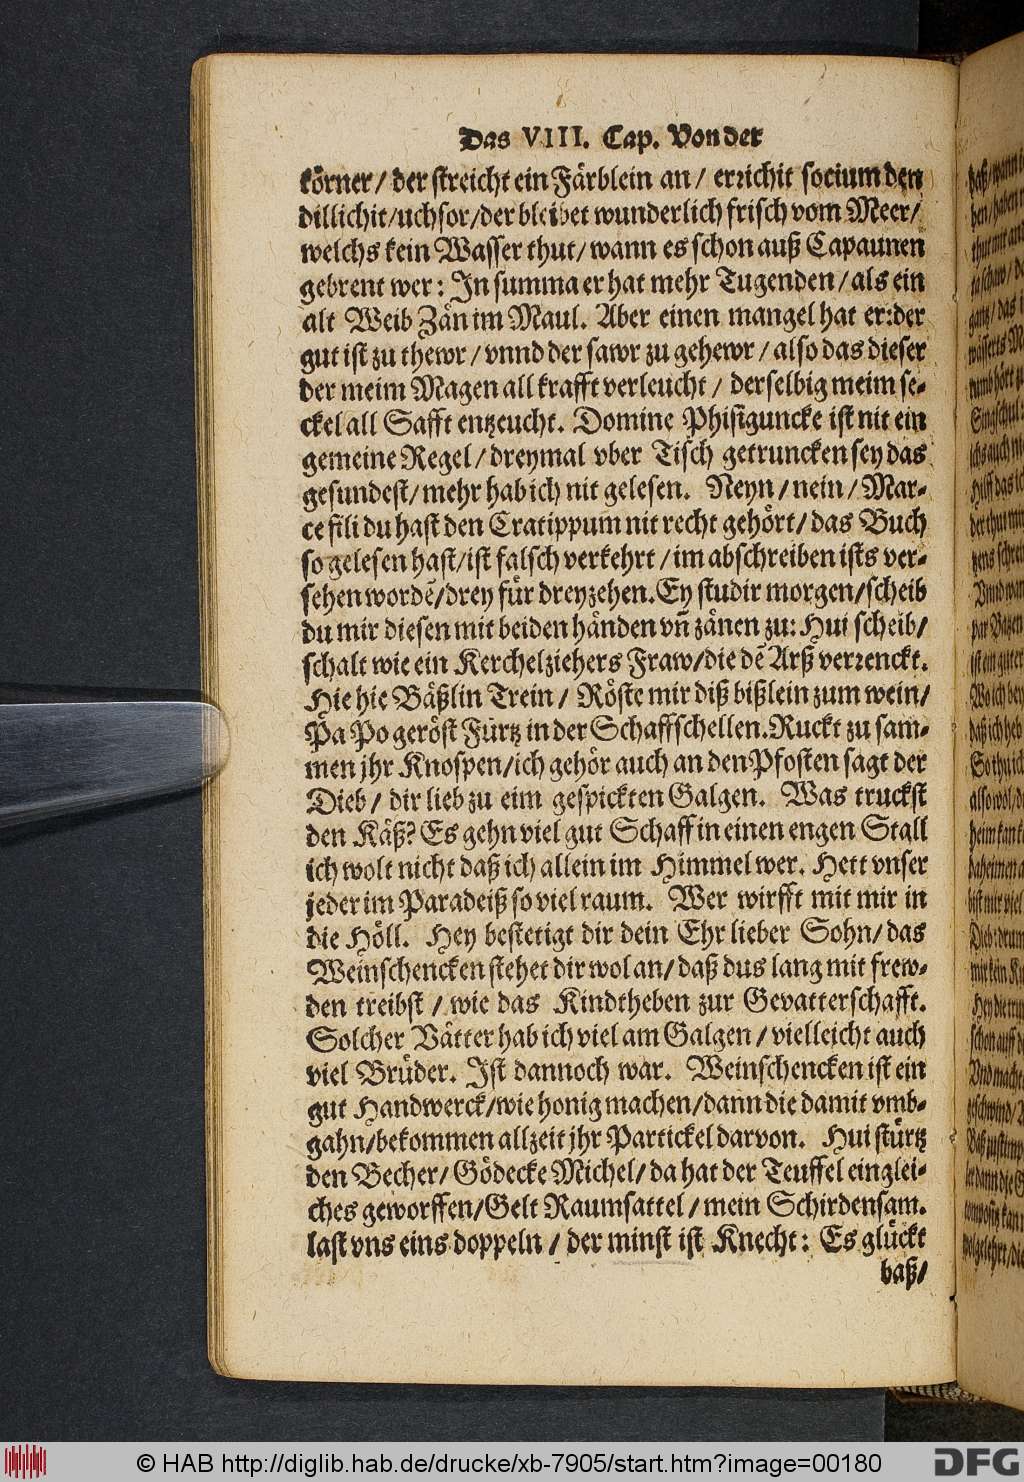 Das VIII. Cap. Von der
körner / der streicht ein Färblein an / errichit socium den
dillichit/uchsor/der bleibet wunderlich frisch vom Meer/
welchs kein Wasser thut/ wann es schon auß Capaunen
gebrent wer: In summa er hat mehr Tugenden/ als ein
alt Weib Zän im Maul. Aber einen mangel hat er: der
gut ist zu thewr / vnnd der sawr zu gehewr / also das dieser
der meim Magen all krafft verleucht / derselbig meim se-
ckel all Safft entzeucht. Domine Phisiguncke ist nit ein
gemeine Regel/ dreymal vber Tisch getruncken sey das
gesundest/ mehr hab ich nit gelesen. Neyn/ nein/ Mar-
ce fili du hast den Cratippum nit recht gehört/ das Buch
so gelesen hast/ist falsch verkehrt / im abschreiben ists ver-
sehen wordē/drey für dreyzehen. Ey studir morgen/scheib
du mir diesen mit beiden händen vñ zänen zu: Hui scheib/
schalt wie ein Kerchelziehers Fraw/die dē Arß verrenckt.
Hie hie Bäßlin Trein / Röste mir diß bißlein zum wein/
Pa Po geröst Fürtz in der Schaffschellen. Ruckt zu sam-
men jhr Knospen/ich gehör auch an den Pfosten sagt der
Dieb/ dir lieb zu eim gespickten Galgen. Was truckst
den Käß? Es gehn viel gut Schaff in einen engen Stall
ich wolt nicht daß ich allein im Himmel wer. Hett vnser
jeder im Paradeiß so viel raum. Wer wirfft mit mir in
die Höll. Hey bestetigt dir dein Ehr lieber Sohn/ das
Weinschencken stehet dir wol an/ daß dus lang mit frew-
den treibst / wie das Kindtheben zur Gevatterschafft.
Solcher Vätter hab ich viel am Galgen / vielleicht auch
viel Brüder. Ist dannoch war. Weinschencken ist ein
gut Handwerck/wie honig machen/dann die damit vmb-
gahn/bekommen allzeit jhr Partickel darvon. Hui stürtz
den Becher/ Gödecke Michel/ da hat der Teuffel ein glei-
ches geworffen/Gelt Raumsattel / mein Schirdensam.
last vns eins doppeln / der minst ist Knecht: Es glückt
baß/
© HAB http://diglib.hab.de/drucke/xb-7905/start.htm?image=00180
DFG